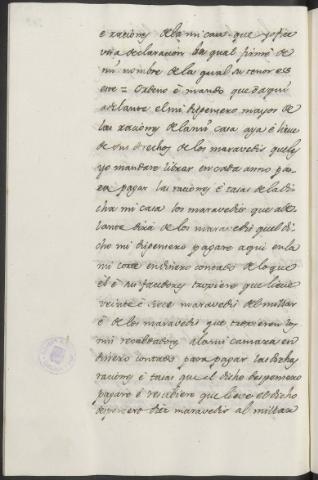 e raciones de la mi casa que yo fize
una declaracion la qual firmé de
mi nombre de la qual su tenor es
este = Ordeno é mando que de aqui
adelante el mi despensero mayor de
las raciones de la mi casa aya é lieve
de sus derechos de los maravedis que le
yo mandare librar en cada anno pa
ra pagar las raciones é casas de la di
cha mi casa los maravedis que ade
lante dirá de los maravedis quel di
cho mi despensero pagare aqui en la
mi corte en dinero contado de lo que
él é su fazedores truxiere que lieve
veinte é cinco maravedis del millar
é de los maravedis que truxeren los
mis recabdadores á la mi camara en
dinero contado para pagar las dichas
raciones é casas que el dicho despensero
pagare é rescibiere que lieve el dicho
despensero diez maravedis al millar